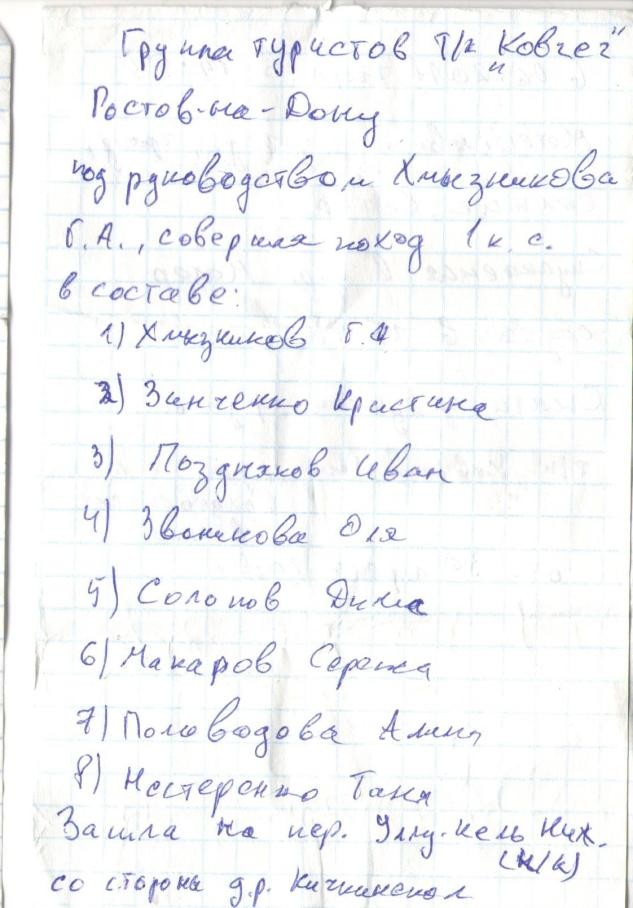 Группа туристов т/к "Ковчег"
Ростов-на-Дону
под руководством Хмызникова
Г.А., соверша поход 1 к. с.
в составе:
1) Хмызников Г.А
2) Зинченко Кристина
3) Поздняков Иван
4) Звоникова Оля
5) Солопов Дима
6) Макаров Сережа
7) Половодова Алина
8) Нестеренко Таня
Зашла на пер. Уллу-Кель Ниж.
(н/к)
со стороны д.р. Кичкинекол